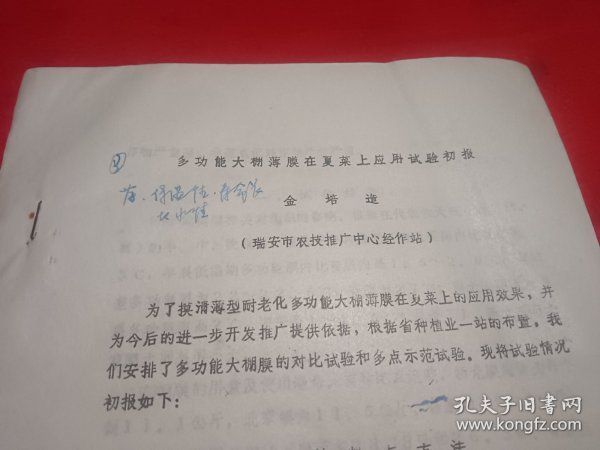 多功能大棚薄膜在夏菜上应用试验初报
金培造
（瑞安市农技推广中心经作站）
为了摸清薄型耐老化多功能大棚薄膜在夏菜上的应用效果，并
为今后的进一步开发推广提供依据，根据省种植业一站的布置。我
们安排了多功能大棚膜的对比试验和多点示范试验。现将试验情况
初报如下：
孔夫子旧书网
www.kongfz.com